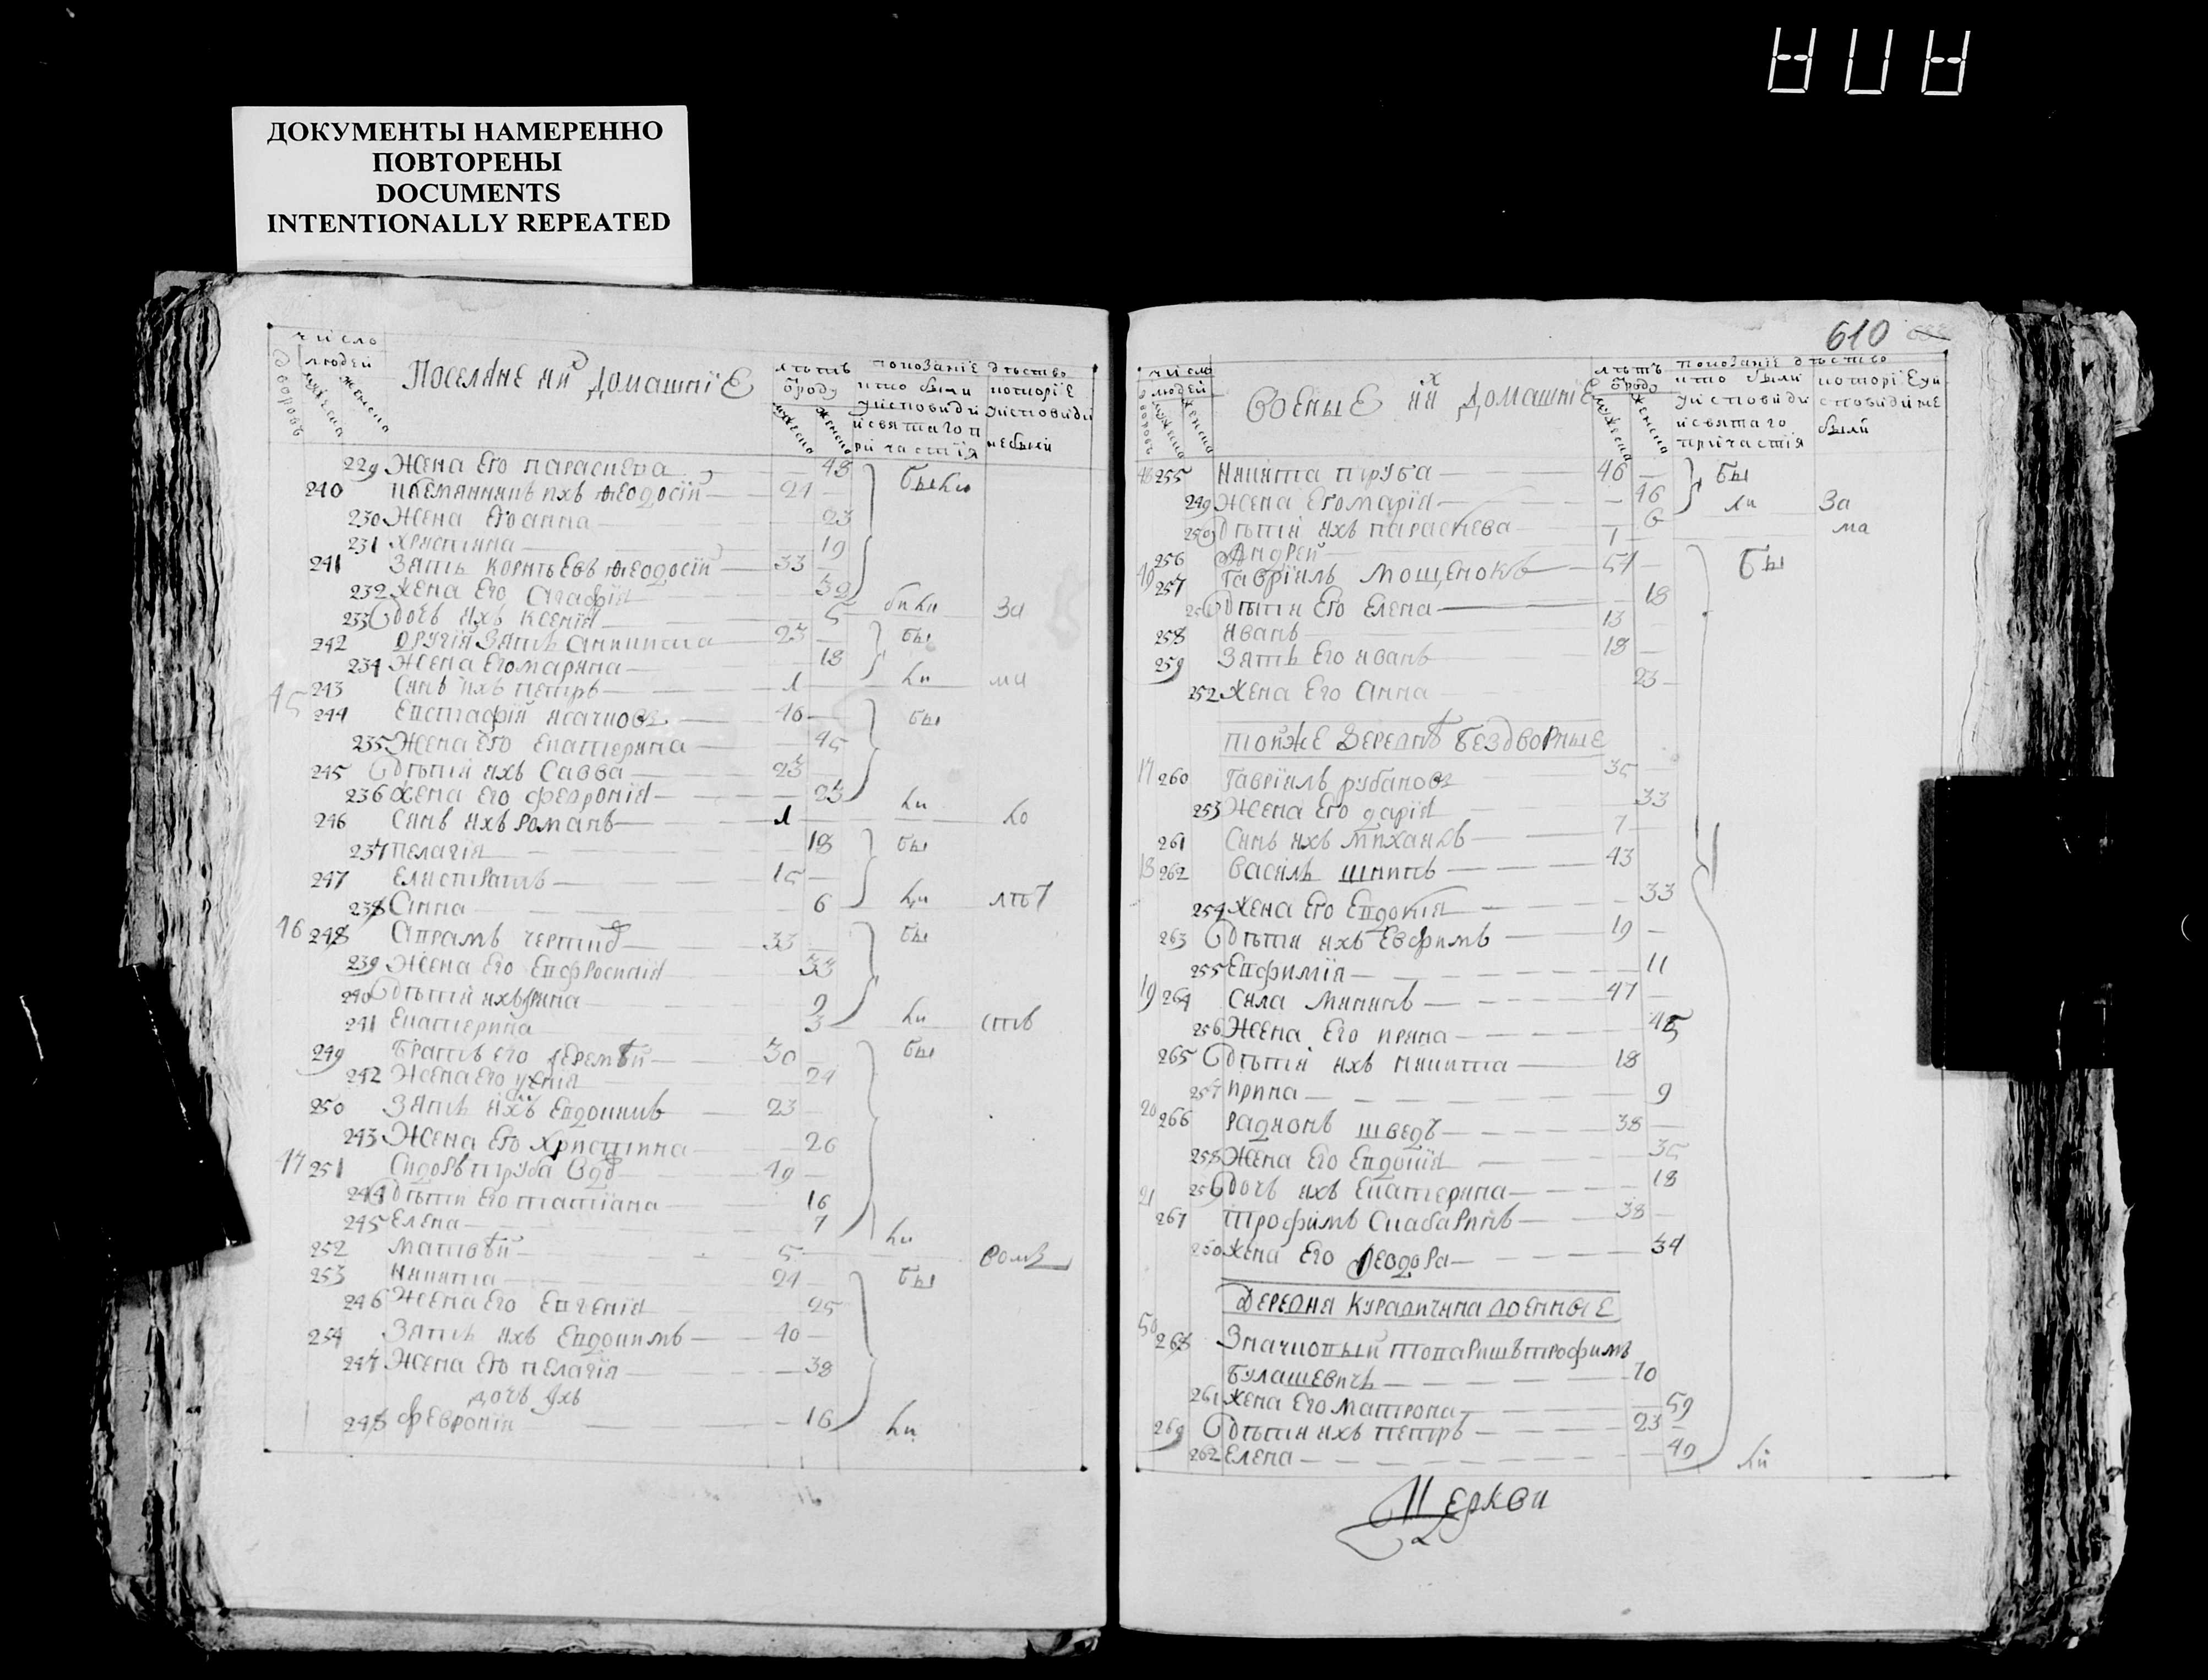 ДОКУМЕНТЫ НАМЕРЕННО
ПОВТОРЕНЫ
DOCUMENTS
INTENTIONALLY REPEATED
число
людей
дворовъ мужеска женска
Поселяне ихъ домашнїе
лѣтъ
ѿ роду
мужеска женска
показанїе дѣство
кто были
у исповѣди
и святаго п
ричастїя
которїе
у исповѣди
не были
229 Жена его параскева 43 были
240 племянникъ ихъ Ѳеодосїй 21
230 Жена его анна 23
231 христина 19
241 Зять корнѣевъ Ѳеодосїй 33
232 Жена его Агафїя 32
233 дочъ ихъ Ксенїя 5 За
242 другїй Зять 23 бы
234 Жена его маряна 18 ли
243 Синъ ихъ петръ 1
45 244 Евстафїй 46 бы
235 Жена его екатерина 45
245 дѣти ихъ Савва 23
236 Жена его феѵронїя 23 ли
246 Синъ ихъ романъ 1 ло
237 пелагїя 18 бы
247 елистратъ 15
238 Анна 6 ли лѣт
46 248 Аврамъ 33 бы
239 Жена его евфросинїя 33
240 дѣти ихъ 9
241 екатерина 3 ли ств
249 братъ его 30 бы
242 Жена его 24
250 Зять ихъ евдокимъ 23
243 Жена его христина 26
47 251 Сидоръ труба вдо 49
244 дѣти его татїана 16
245 елена 7 ли
252 матвѣй 5
253 никита 24 бы
246 Жена его евгенїя 25
254 Зять ихъ евдокимъ 40
247 Жена его пелагїя 38
дочъ ихъ
248 февронїя 16 ли
610
число
людей
дворовъ мужеска женска
военые ихъ домашнїе
лѣтъ
ѿ роду
мужеска женска
показанїе дѣство
кто были
у исповѣди
и святаго
причастїя
которїе у и
сповѣди не
были
48 255 никита труба 46 бы
249 Жена его марїя 46 ли За
250 дѣти ихъ параскева 6 ма
256 Андрей 1
49 257 гаврїилъ мощенокъ 51 бы
251 дѣти его елена 18
258 иванъ 13
259 Зять его иванъ 18
252 Жена его анна 23
тойже деревнѣ бездворные
17 260 гаврїилъ рубановъ 35
253 Жена его дарїя 33
261 Синъ ихъ михаилъ 7
18 262 василь шпитъ 43
254 Жена его евдокїя 33
263 дѣти ихъ евфимъ 19
255 евфимїя 11
19 264 Сила 47
256 Жена его ирина 45
265 дѣти ихъ никита 18
257 ирина 9
20 266 радионъ шведъ 38
258 Жена его евдокїя 35
259 дочъ ихъ екатерина 18
21 267 трофимъ 38
260 Жена его Ѳеодора 34
деревня курдичина военные
50 268 Значковый товаришъ трофимъ
булашевичъ 70
261 Жена его матрона 59
269 дѣти ихъ петръ 23
262 елена 40 ли
Церкви